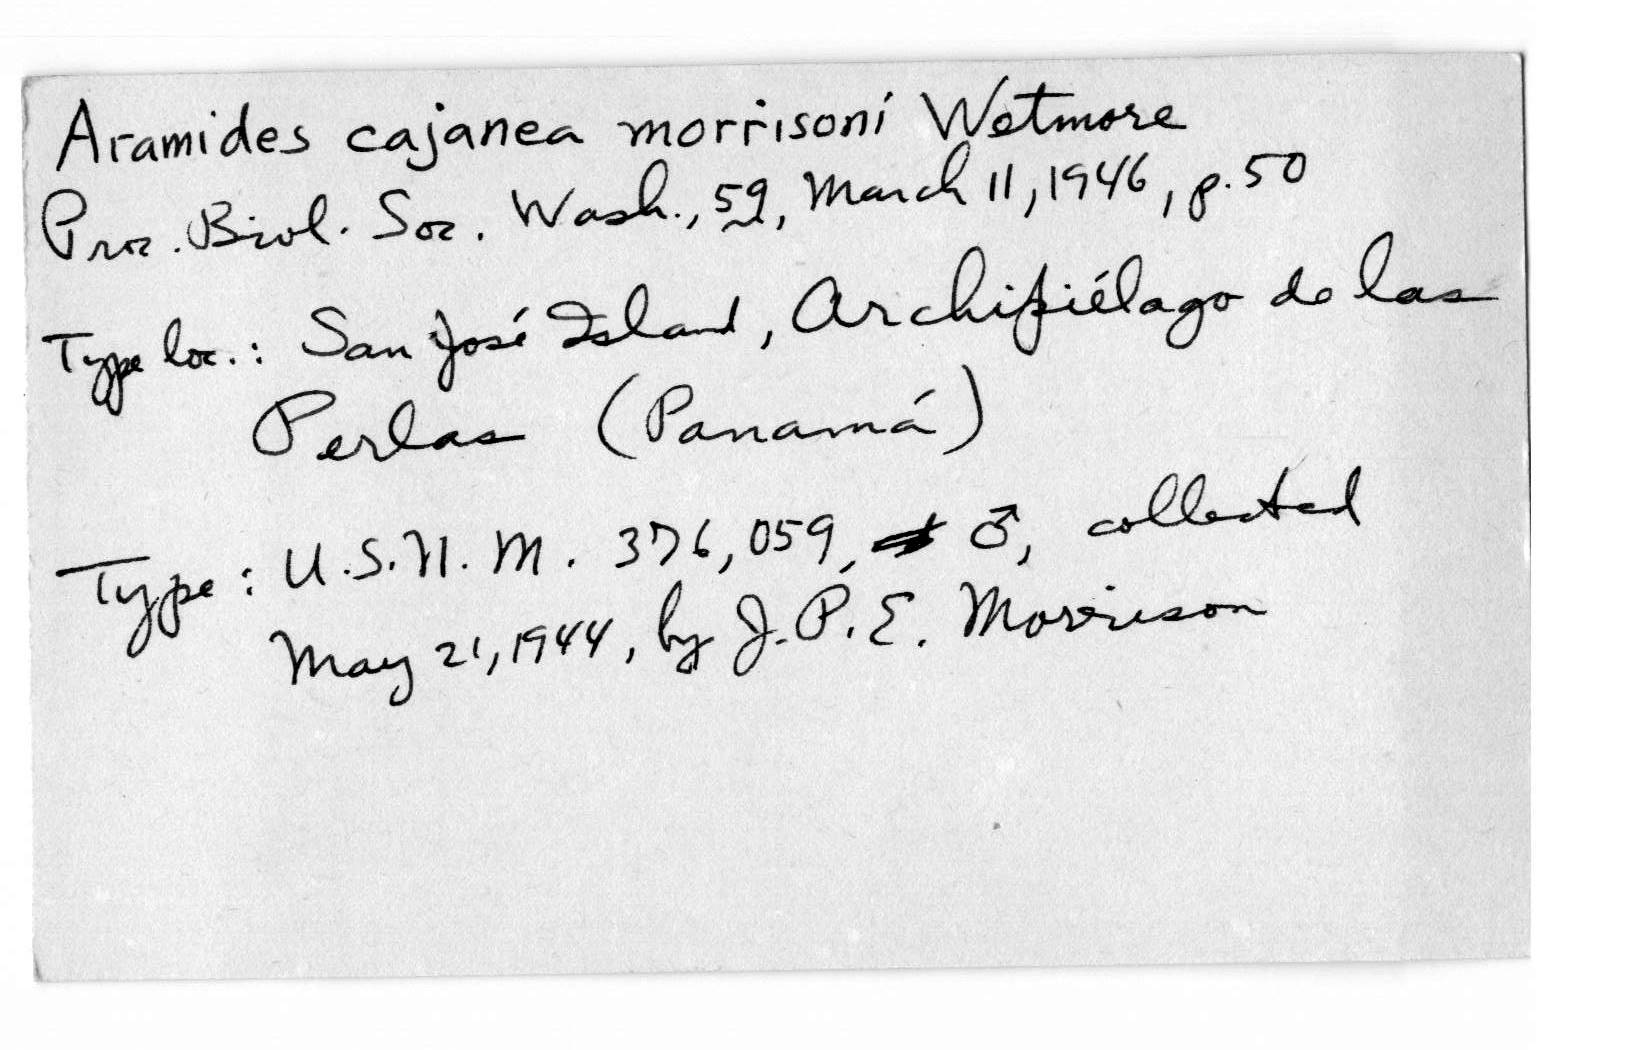 Aramides cajanea morrisoni Wetmore
Proc. Biol. Soc. Wash., 59, March 11, 1946, p. 50
Type loc.: San José Island, Archipiélago de las
Perlas (Panamá)
Type: U.S.N.M. 376,059, ♂, collected
May 21, 1944, by J.P.E. Morrison